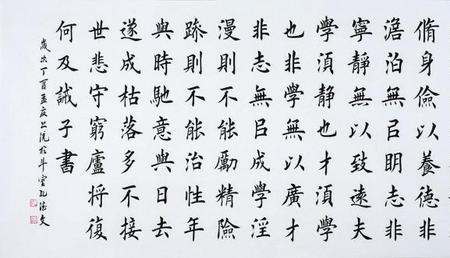 脩身儉以養德非
澹泊無㠯明志非
寧靜無以致遠夫
學湏靜也才湏學
也非學無以廣才
非志無㠯成學淫
漫則不能勵精險
躁則不能治性年
與時馳意與日去
遂成枯落多不接
世悲守窮廬將復
何及誡子書
歲次丁酉孟夏上浣於斗室